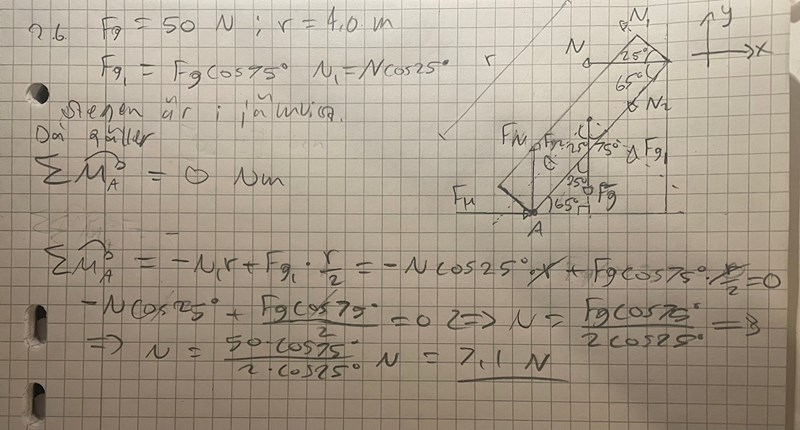 2.6. Fg = 50 N ; r = 4,0 m
Fg₁ = Fg cos75° N₁ = Ncos25°
Stegen är i jämvikt.
Då gäller
ΣM_A = 0 Nm
N₁
y
x
N
25°
r
65°
N₂
F_N
25°
75°
Fg₁
F_H
65°
Fg
A
ΣM_A = -N₁r + Fg₁ · r/2 = -N cos25° · r + Fg cos75° · r/2 = 0
-N cos25° + Fg cos75°/2 = 0 <=> N = Fg cos75°/2 cos25° =>
=> N = 50 · cos75°/2 · cos25° N = 7,1 N